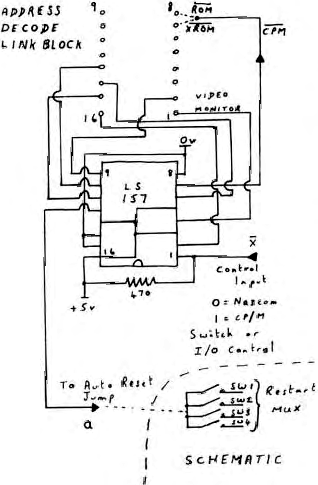 ADDRESS
DECODE
LINK BLOCK
9
8
ROM
XROM
CPM
VIDEO
MONITOR
16
1
0v
9
8
LS
157
16
1
X
470
+5v
Control
Input
0 = Nascom
1 = CP/M
Switch or
I/O Control
To Auto Reset
Jump
a
SW1
SW2
SW3
SW4
Restart
MUX
SCHEMATIC